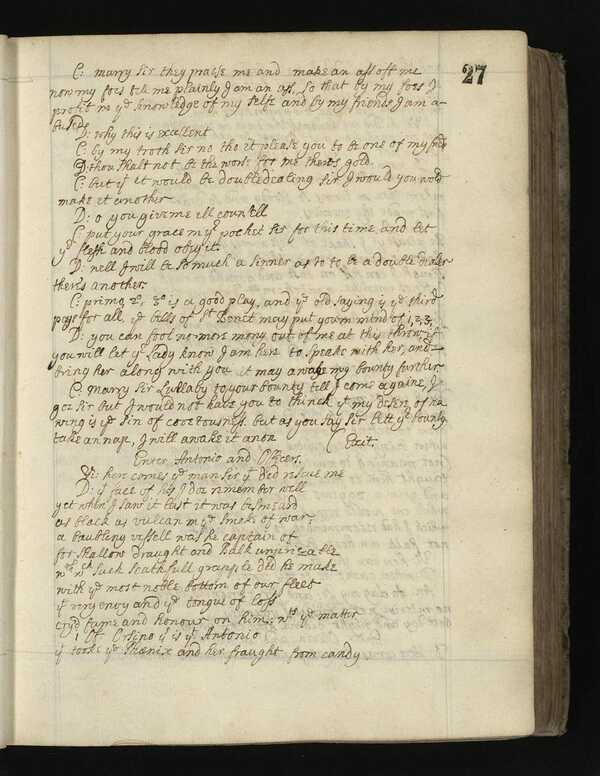 27
C: marry sir they praise me and make an ass off me
now my foes tell me plainly I am an ass, so that by my foes I
profit in yᵉ knowledge of my selfe and by my friends I am a-
bused
D: why this is excellent
C: by my troth sir no tho it please you to be one of my friends
D: thou shalt not be the worse for me theres gold.
C: but yᵗ it would be doubledealing sir I would you would
make it another
D: o you give me ill counsell
C put your grace in yʳ pocket sir for this time and let
yʳ flesh and blood obey it.
D: well I will be so much a sinner as to be a double dealer
theres another.
C: primo, 2º, 3º is a good play, and yᵉ old saying is yᵉ third
pays for all, yᵉ bells of Sᵗ Benit may put you in mind of 1, 2, 3,
D: you can fool no more mony out of me at this throw, if
you will let yʳ Lady know I am here to speake with her, and
bring her along with you it may awake my bounty further
C: marry sir Lullaby to your bounty till I come againe, I
goe sir but I would not have you to thinck yᵗ my desire of ha
ving is yᵉ sin of covetousness. but as you say sir lett yʳ bounty
take an nap, I will awake it anon Exit.
Enter Antonio and Officers.
Vi: here comes yᵉ man sir yᵗ did rescue me
D: yᵗ face of his I doe remember well
yet when I saw it last it was besmeard
as black as vulcan in yᵉ smoke of war;
a baubling vessell was he captain of
for shallow draught and bulk unprizable
wᵗʰ wᶜʰ such scathfull grapple did he make
with yᵉ most noble bottom of our fleet
yᵗ very envy and yᵉ tongue of loss
cryd fame and honour on him; wᵗˢ yᵉ matter
1 Of: Orsino yˢ is yᵗ Antonio
yᵗ tooke yᵉ Phœnix and her fraught from candy